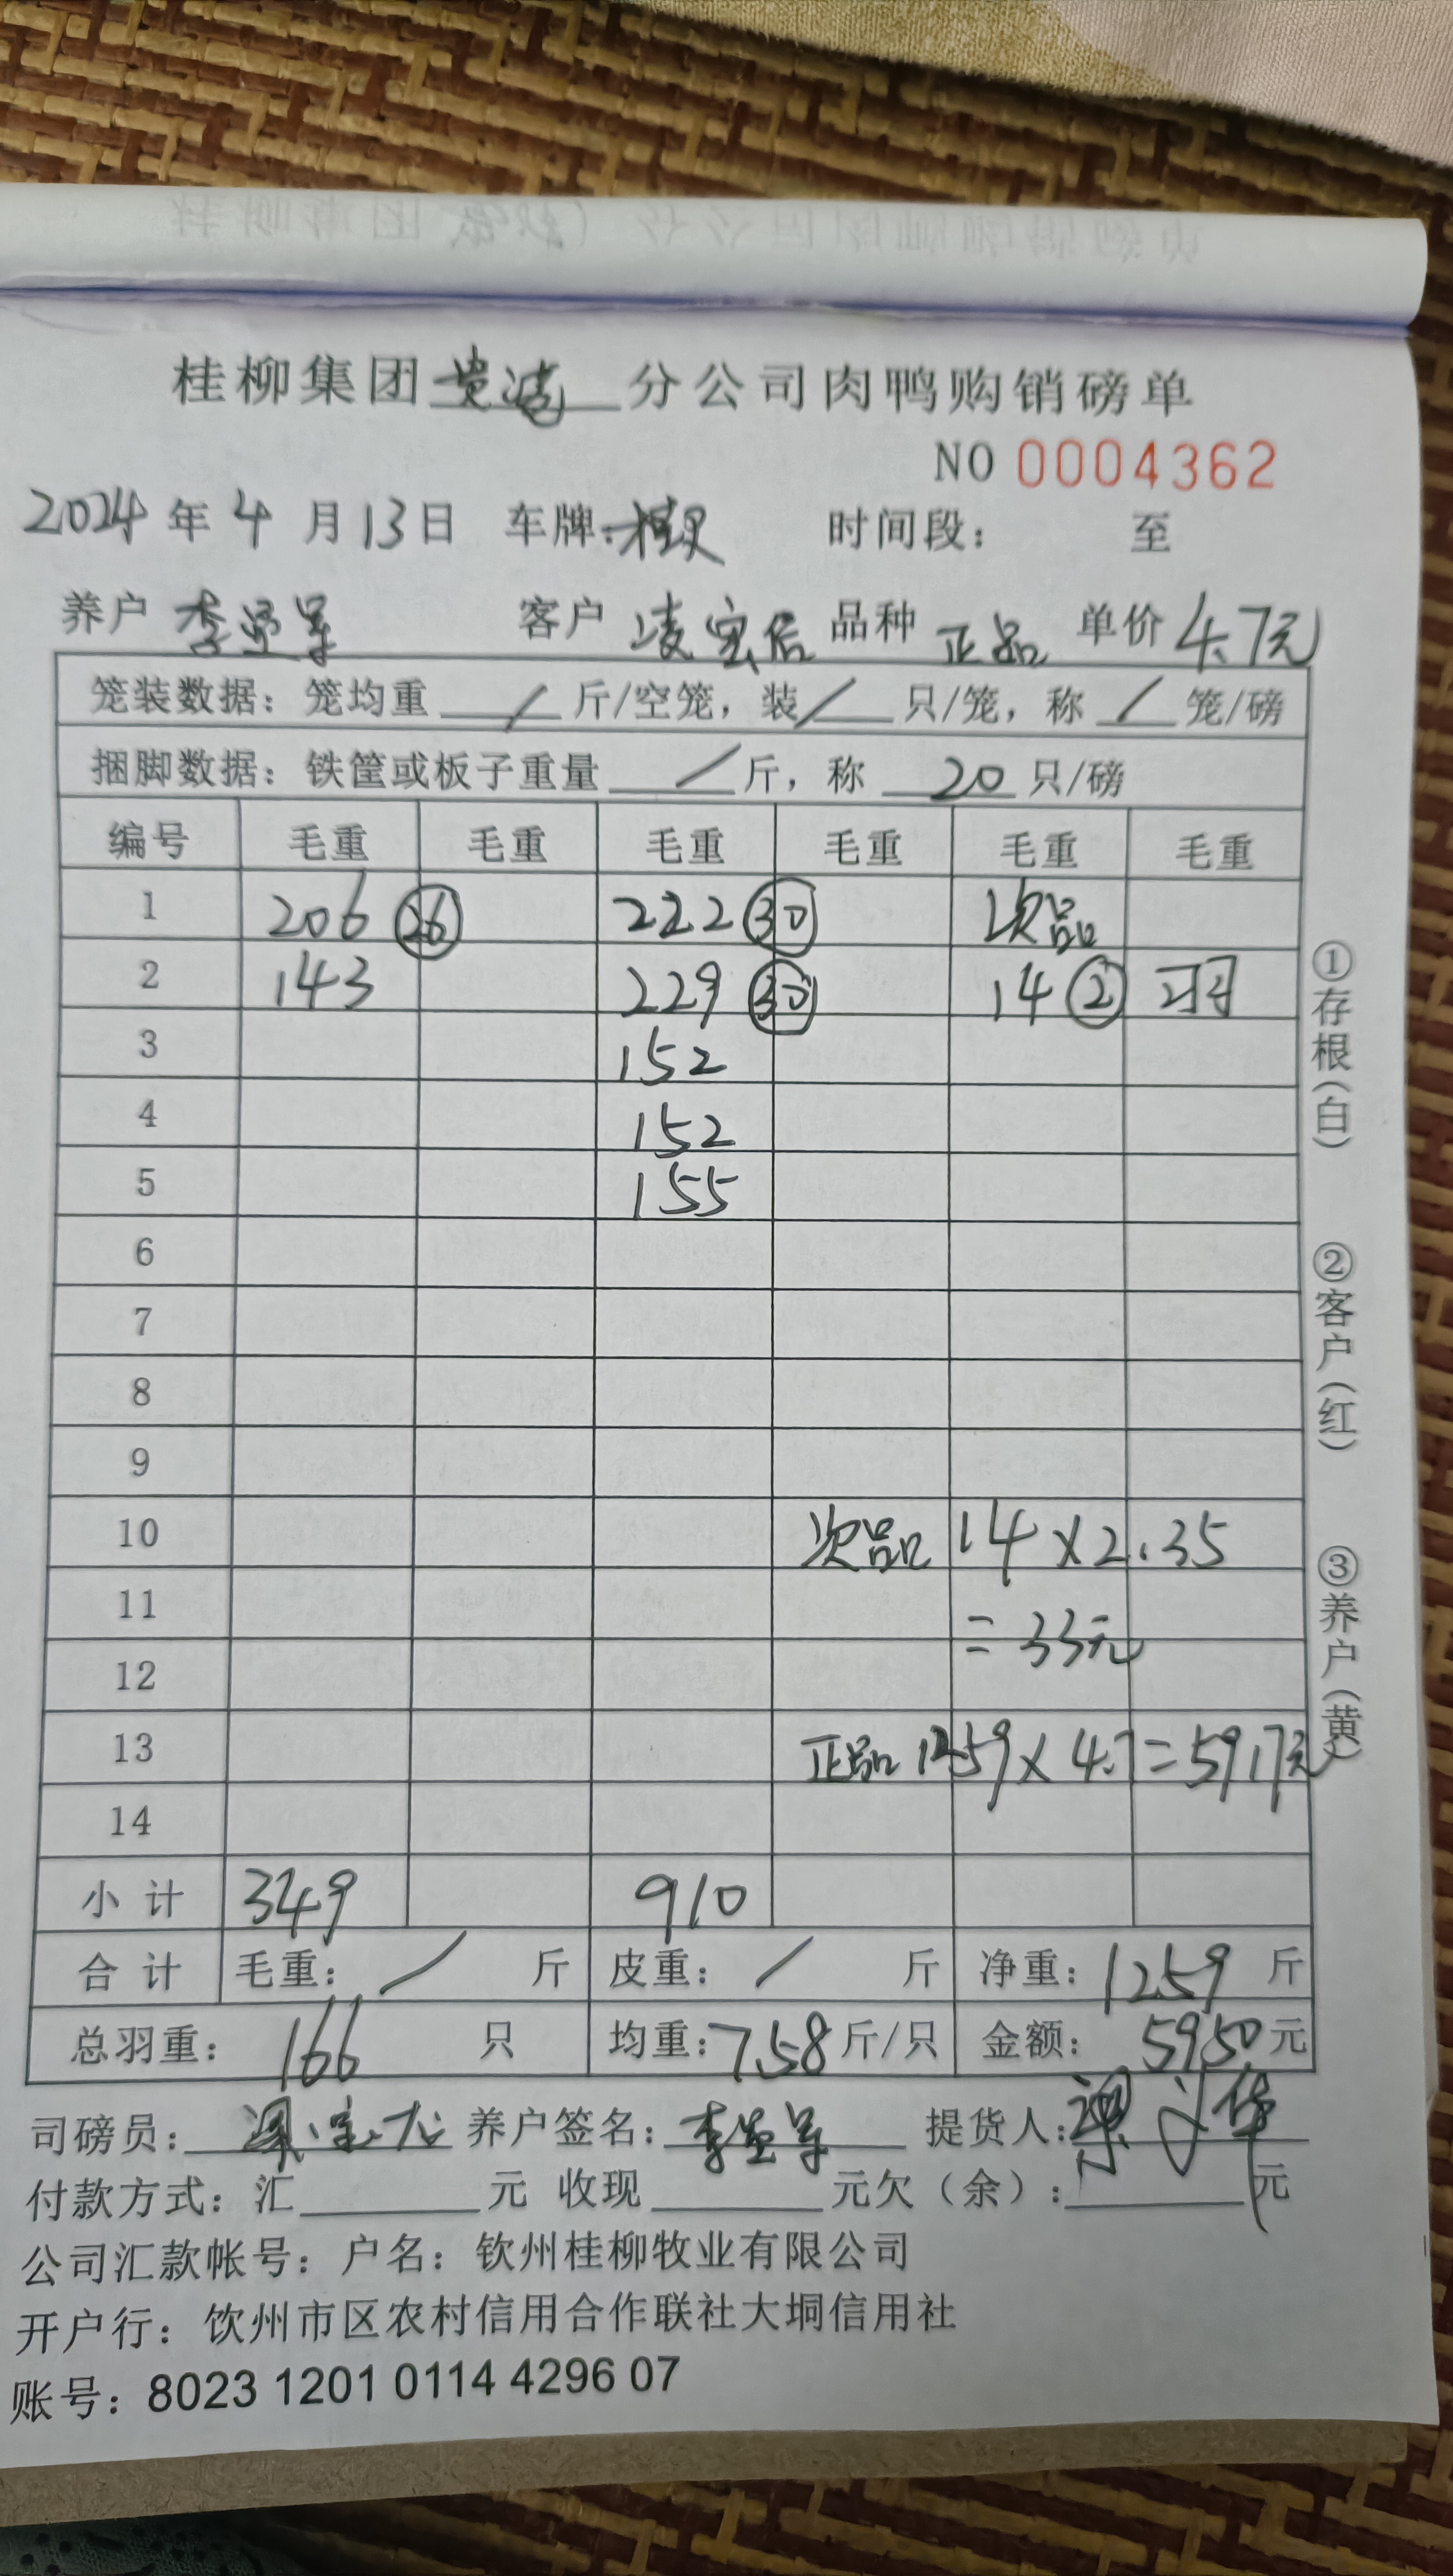 桂柳集团 分公司肉鸭购销磅单
NO 0004362
2024年 4 月 13日 车牌: 时间段: 至
养户 李 军 客户 凌宏后 品种 正品 单价 4.7元
笼装数据: 笼均重 / 斤/空笼, 装 / 只/笼, 称 / 笼/磅
捆脚数据: 铁筐或板子重量 / 斤, 称 20 只/磅
编号 毛重 毛重 毛重 毛重 毛重 毛重
1 206 (26) 222 (30) 次品
2 143 229 (30) 14 (2) 羽
3 152
4 152
5 155
6
7
8
9
10 次品 14×2.35
11 =33元
12
13 正品 1259×4.7=5917元
14
小计 349 910
合计 毛重: / 斤 皮重: / 斤 净重: 1259 斤
总羽重: 166 只 均重: 7.58 斤/只 金额: 5950元
司磅员: 养户签名: 李 军 提货人: 梁 华
付款方式: 汇 元 收现 元欠(余): 元
公司汇款帐号: 户名: 钦州桂柳牧业有限公司
开户行: 饮州市区农村信用合作联社大垌信用社
账号: 8023 1201 0114 4296 07
①存根(白) ②客户(红) ③养户(黄)